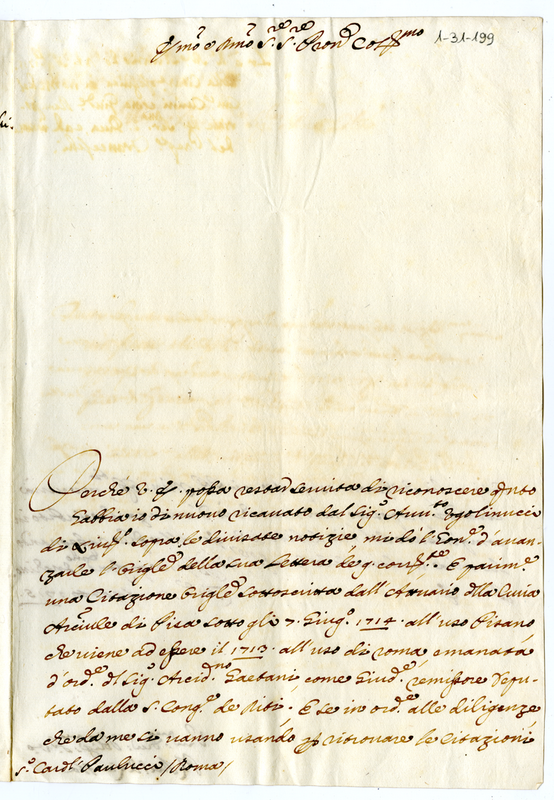 Emo e Rmo Sre Sre Pron Colmo
1-31-199
Perché V. E. possa restar servita di riconoscere quanto
habbia io di nuovo ricavato dal Sig.
di sopra le divisate notizie mi dò l'onore d'avan-
zarle l'origle della sua lettera de 9. corrte. E parimte
una Citazione origle sottoscritta dall'Attuario della Curia
di Pisa sotto gli 7. Giugo. 1714. all'uso Pisano
che viene ad essere il 1713. all'uso di roma, emanata
d'orde. del Sig. Arcidno Gaetani, come Giude. remissore Depu-
tato dalla S. Conge de Riti. E se in orde. alle diligenze
che da me si vanno usando per ritrovare le Citazioni
Sr Cardl Paulucci /Roma/